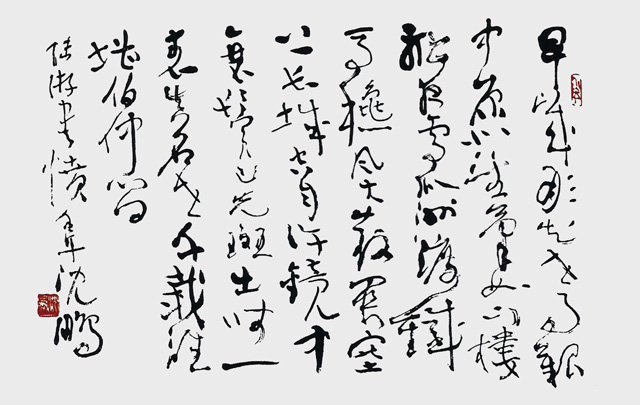 早歲那知世事艱
中原北望氣如山樓
船夜雪瓜洲渡鐵
馬秋風大散關塞
上長城空自許鏡中
衰鬢已先斑出師一
表真名世千載誰
堪伯仲間
陸游書憤 沈鵬